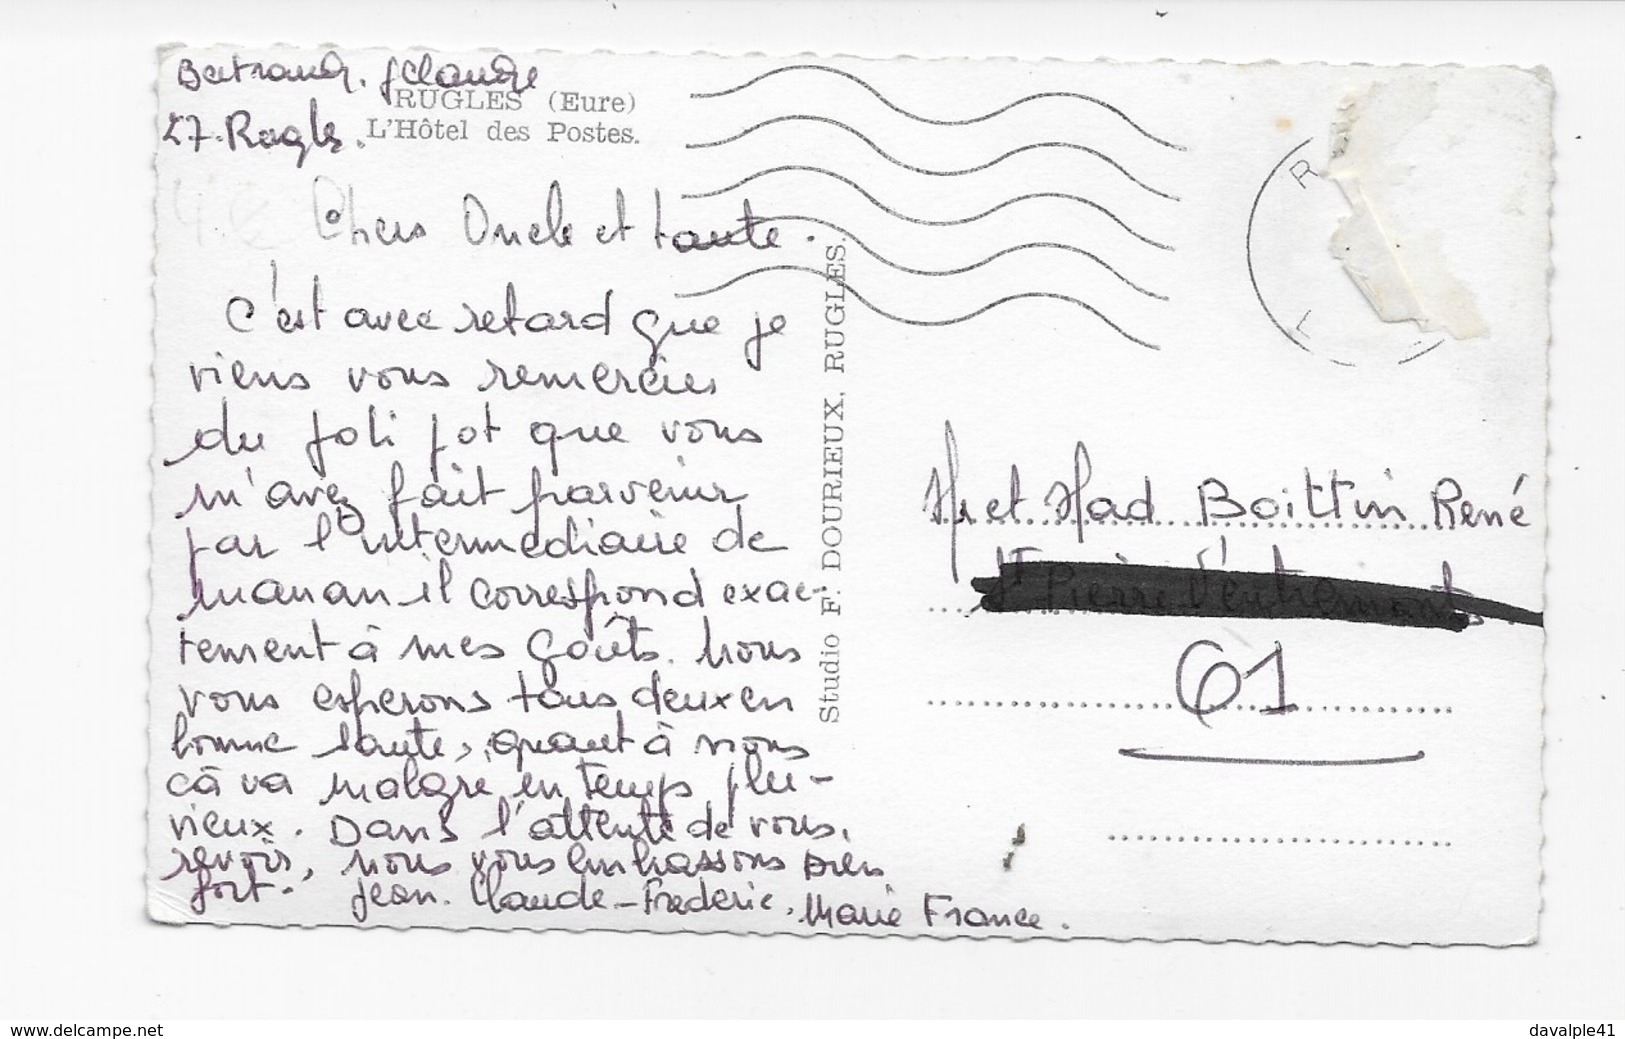 Bertrand. J Claude
27. Rugles.
RUGLES (Eure)
L'Hôtel des Postes.
Chers Oncle et tante.
C'est avec retard que je
viens vous remercier
du joli pot que vous
m'avez fait parvenir
par l'intermediaire de
maman il correspond exac-
tement à mes goûts. Nous
vous esperons tous deux en
bonne sante, quant à nous
cà va malgré un temps plu-
vieux. Dans l'attente de vous
revoir, nous vous embrassons bien
fort. Jean. Claude - Frederic, Marie France.
Studio F. DOURIEUX, RUGLES.
R
L
Mr et Mad Boittin René
St Pierre d'entremont
61
www.delcampe.net
davalple41